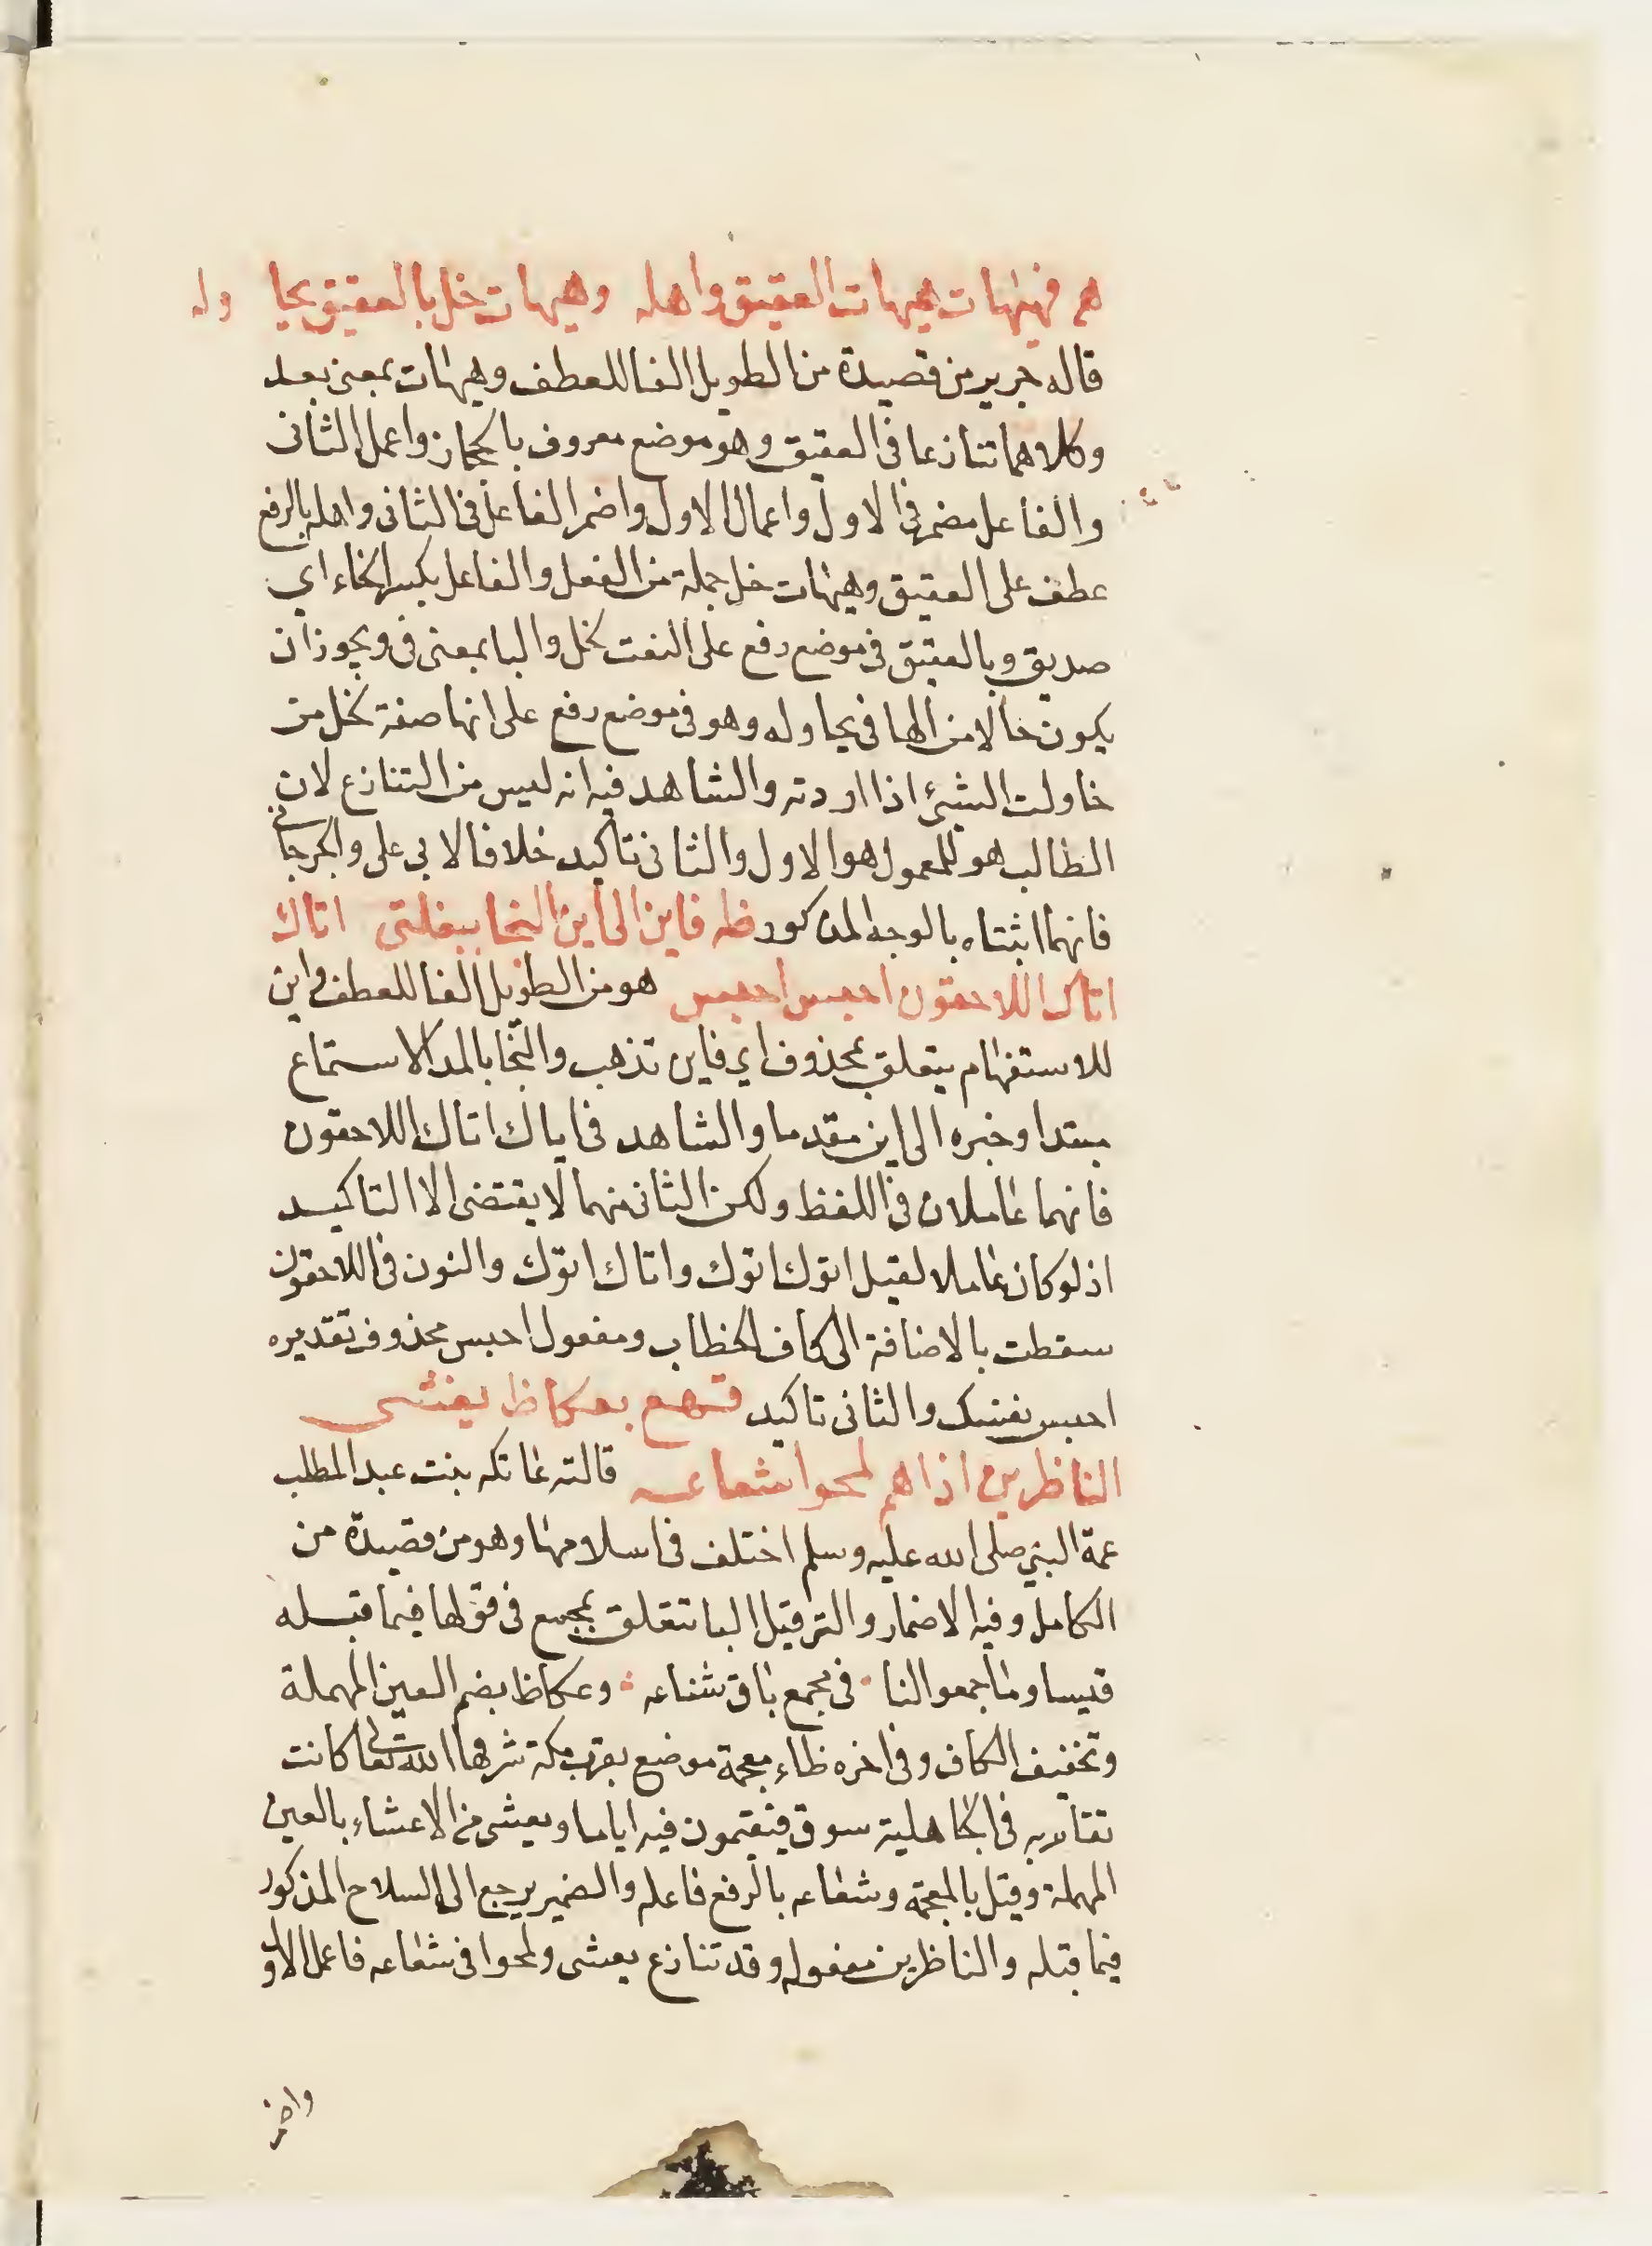 هم فهيهات هيهات العقيق واهله وهيهات خل بالعقيق يحا وله
قاله جرير من قصيدة من الطويل الفا للعطف وهيهات بمعنى بعد
وكلاهما تنازعا في العقيق وهو موضع معروف بالحجاز واعمل الثانى
والفاعل مضمر في الاول واعمال الاول واضمر الفاعل فى الثانى واهله بالرفع
عطف على العقيق وهيهات خل جملة من الفعل والفاعل بكسر الخاء اي
صديق وبالعقيق في موضع رفع على النعت لخل والبا بمعنى فى ويجوز ان
يكون حالا من الها في يحاوله وهو فى موضع رفع على انها صفة لخل من
حاولت الشئ اذا اردته والشاهد فيه انه ليس من التنازع لان
الطالب هو للمعمول هو الاول والثانى تاكيد خلافا لابي على والجرجانى
فانهما اثبتاه بالوجه المذكور ظه فاين الى اين النجا ببغلتى اتاك
اتاك اللاحقون احبس احبس هو من الطويل الفا للعطف واين
للاستفهام يتعلق بمحذوف اي فاين تذهب والنجا بالمد الاستماع
مبتدا وخبره الى اين مقدما والشاهد فى اياك اتاك اللاحقون
فانهما عاملان فى اللفظ ولكن الثانى منهما لا يقتضى الا التاكيد
اذ لو كان عاملا لقيل اتوك اتوك واتاك اتوك والنون فى اللاحقون
سقطت بالاضافة الى كاف الخطاب ومفعول احبس محذوف تقديره
احبس نفسك والثانى تاكيد قهع بعكاظ يغشى
الناظرين اذا هم لمحوا شعاعه قالته عاتكه بنت عبد المطلب
عمة النبي صلى الله عليه وسلم اختلف فى اسلامها وهو من قصيدة من
الكامل وفيه الاضمار والترفيل البا تتعلق بمجمع فى قولها فيما قبله
قيسا وما جمعوا لنا فى مجمع باق شناعه وعكاظ بضم العين المهملة
وتخفيف الكاف وفى اخره ظاء معجمة موضع بقرب مكة شرفها الله تعالى كانت
تقام به فى الجاهلية سوق فيقيمون فيه اياما ويعشى من الاعشاء بالعين
المهملة وقيل بالمعجمة وشعاعه بالرفع فاعله والضمير يرجع الى السلاح المذكور
فيما قبله والناظرين مفعوله وقد تنازع يعشى ولمحوا فى شعاعه فاعمل الاول
واضمر